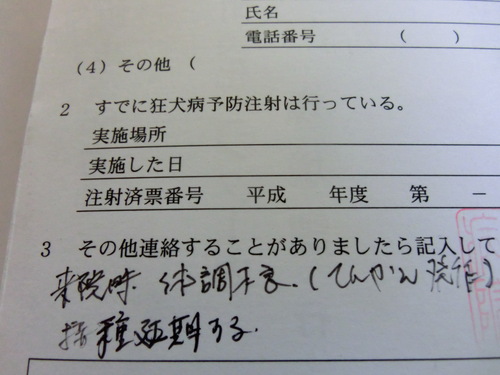 氏名
電話番号 ( )
(4) その他 (
2 すでに狂犬病予防注射は行っている。
実施場所
実施した日
注射済票番号 平成 年度 第 －
3 その他連絡することがありましたら記入して
来院時 体調不良.(てんかん発作)
接種延期する.